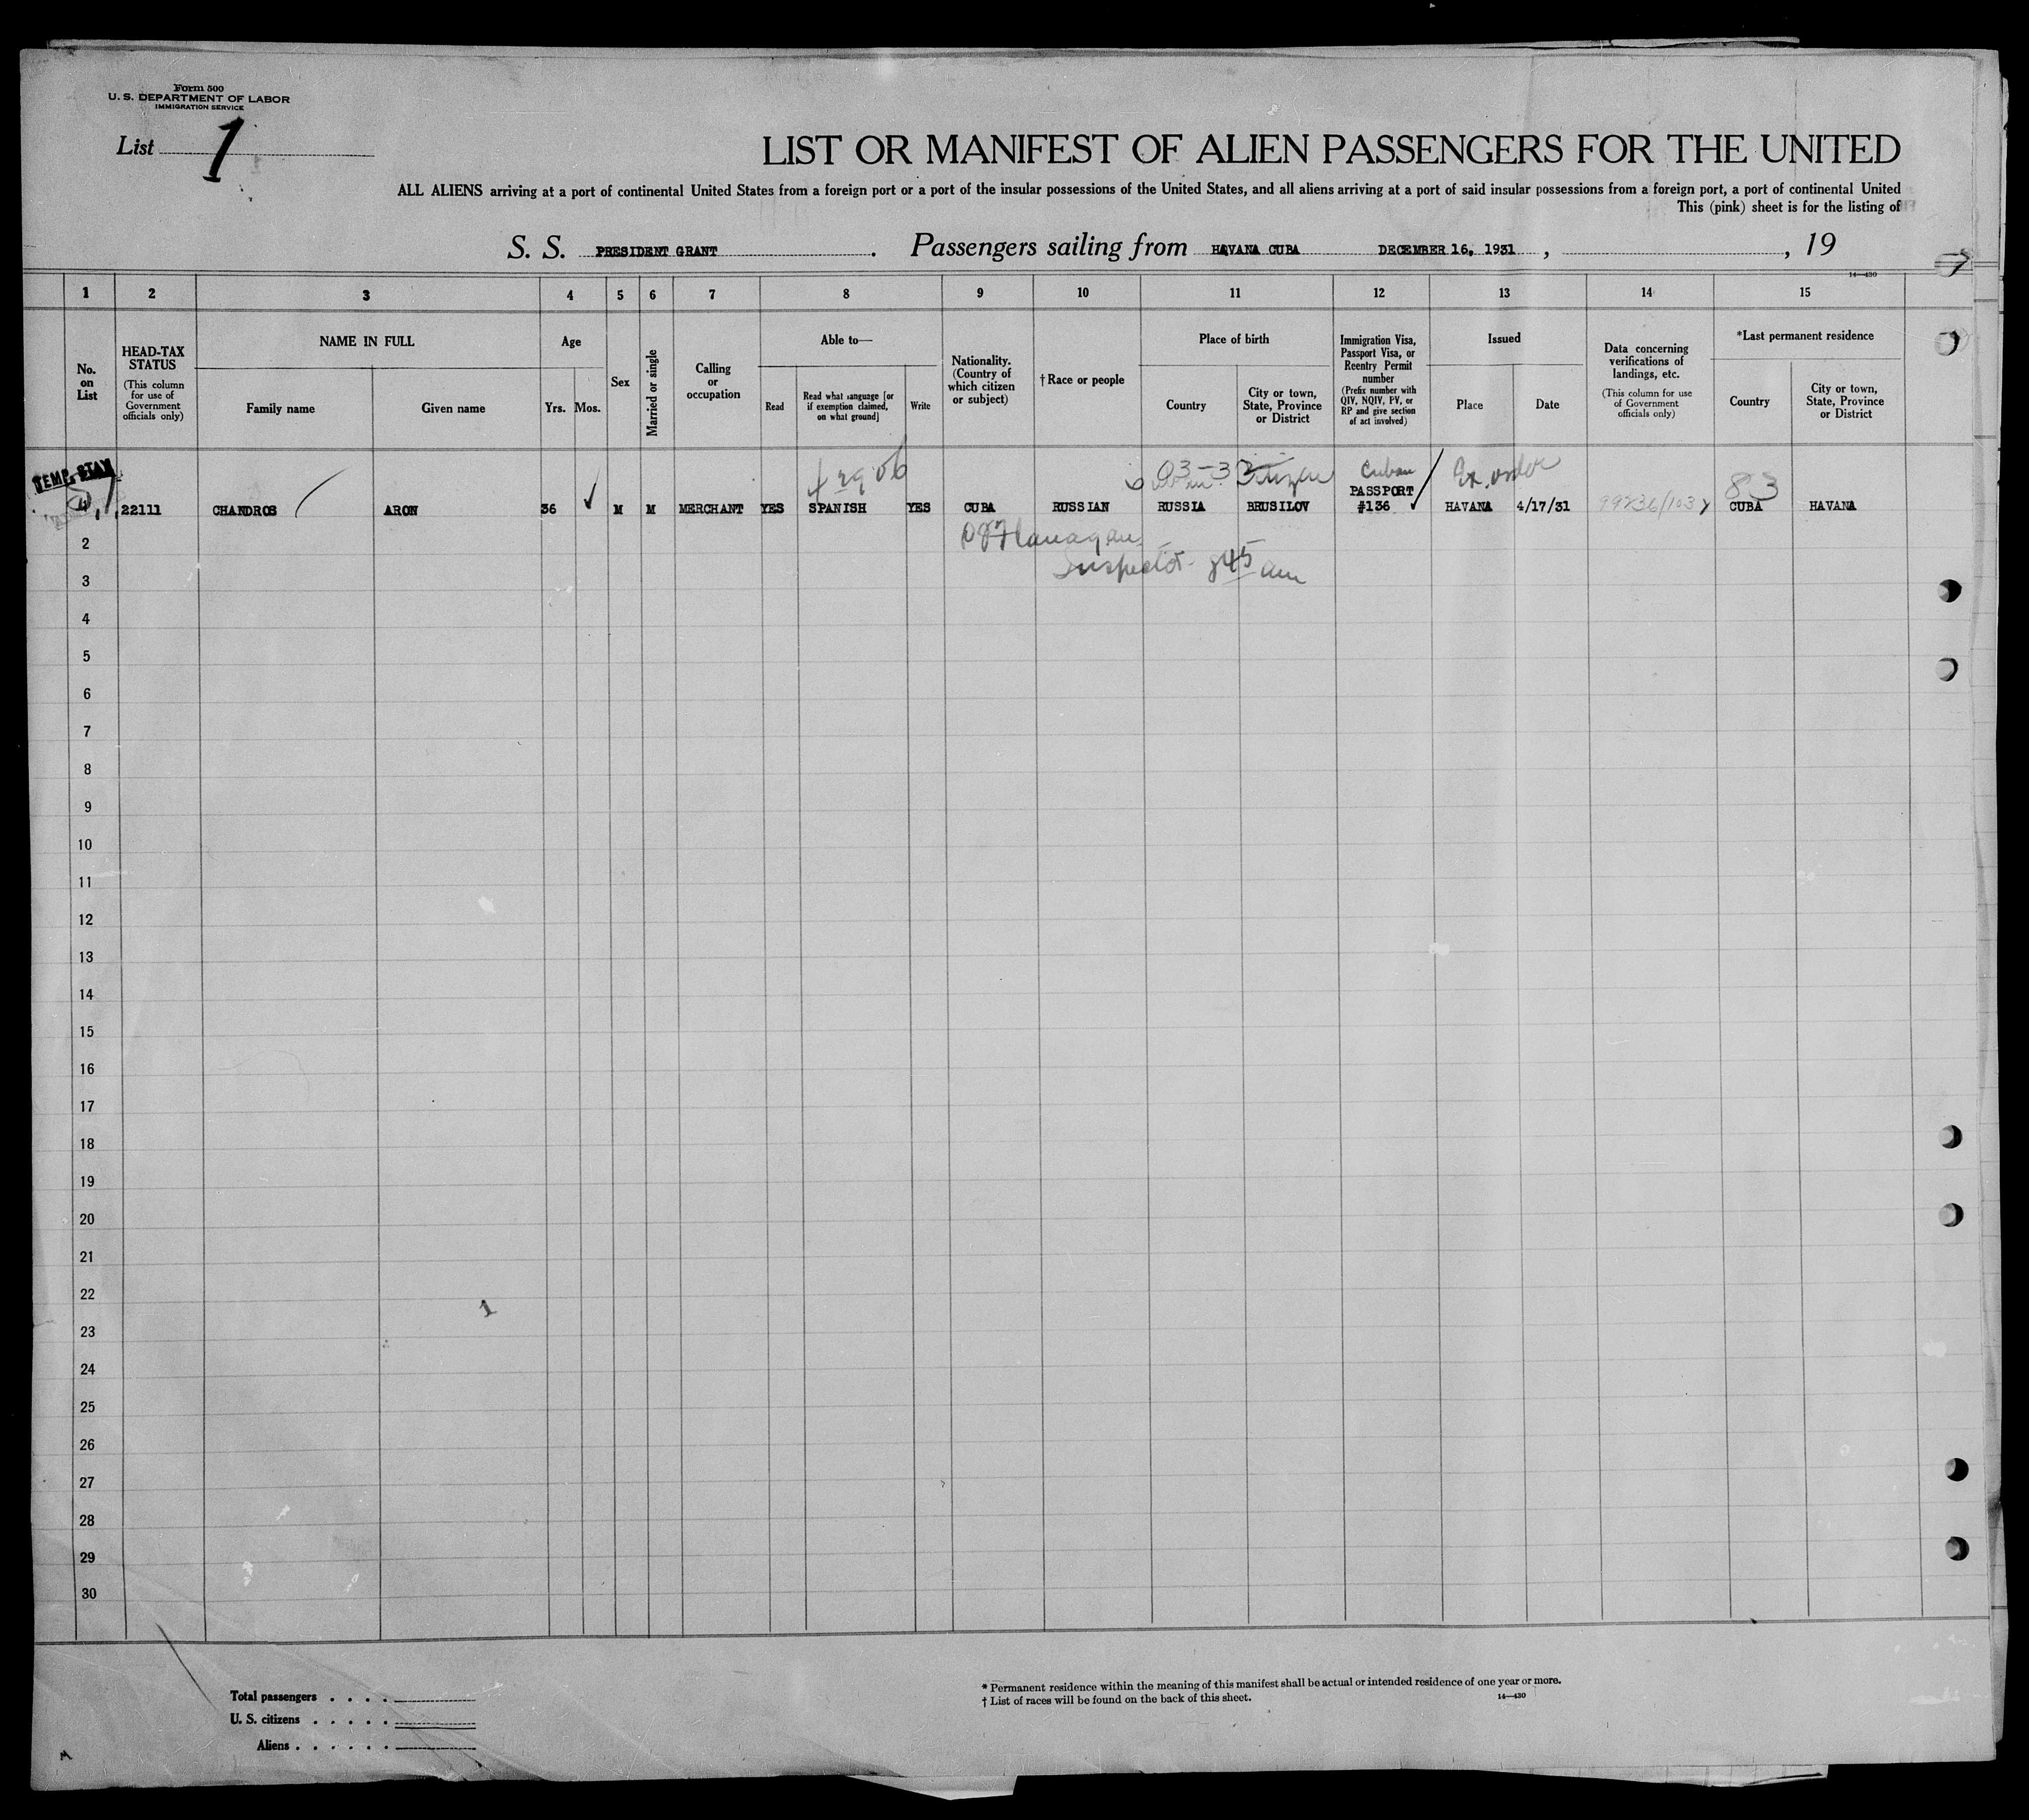 Form 500
U. S. DEPARTMENT OF LABOR
IMMIGRATION SERVICE
List 1
LIST OR MANIFEST OF ALIEN PASSENGERS FOR THE UNITED
ALL ALIENS arriving at a port of continental United States from a foreign port or a port of the insular possessions of the United States, and all aliens arriving at a port of said insular possessions from a foreign port, a port of continental United
This (pink) sheet is for the listing of
S. S. PRESIDENT GRANT. Passengers sailing from HAVANA CUBA DECEMBER 16, 1931, , 19
14—430
1 2 3 4 5 6 7 8 9 10 11 12 13 14 15
No. on List
HEAD-TAX STATUS
(This column for use of Government officials only)
NAME IN FULL
Family name
Given name
Age
Yrs.
Mos.
Sex
Married or single
Calling or occupation
Able to—
Read
Read what language [or if exemption claimed, on what ground]
Write
Nationality. (Country of which citizen or subject)
†Race or people
Place of birth
Country
City or town, State, Province or District
Immigration Visa, Passport Visa, or Reentry Permit number
(Prefix number with QIV, NQIV, PV, or RP and give section of act involved)
Issued
Place
Date
Data concerning verifications of landings, etc.
(This column for use of Government officials only)
*Last permanent residence
Country
City or town, State, Province or District
TEMP. STAY
03-3 Citizen
Cuban
Ex. order
83
22111 CHANDROS ARON 36 M M MERCHANT YES SPANISH YES CUBA RUSSIAN RUSSIA BRUSILOV PASSPORT #136 HAVANA 4/17/31 CUBA HAVANA
Flanagan
Inspector 845 am
2
3
4
5
6
7
8
9
10
11
12
13
14
15
16
17
18
19
20
21
22
1
23
24
25
26
27
28
29
30
Total passengers . . . .
U. S. citizens . . . . .
Aliens . . . . . .
* Permanent residence within the meaning of this manifest shall be actual or intended residence of one year or more.
† List of races will be found on the back of this sheet.
14—430